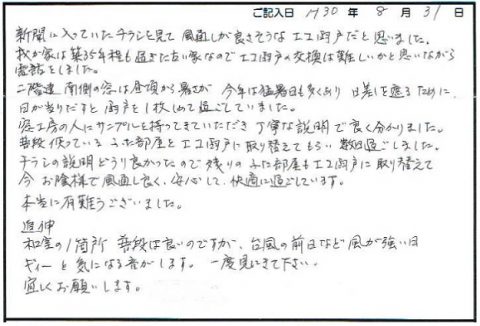 ご記入日 H30年 8月 31日
新聞に入っていたチラシを見て 風通しが良さそうな エコ雨戸だと 思いました。
我が家は築35年程も過ぎた古い家なのでエコ雨戸の交換は難しいかと思いながら
電話をしました。
二階建 南側の窓は昼頃から暑さが 今年は猛暑日も多くあり 日差しを遮るために、
日が当りだすと雨戸を1枚しめて過ごしていました。
窓工房の人にサンプルを持ってきていただき 丁寧な説明で良く分かりました。
普段使っている ふた部屋をエコ雨戸に取り替えてもらい 数日過ごしました。
チラシの説明どうり良かったので 残りのふた部屋もエコ雨戸に取り替えて
今 お陰様で風通し良く、安心して、快適に過ごしています。
本当に有難うございました。
追伸
和室の1箇所 普段は良いのですが、台風の前日など風が強い日
ギィーと気になる音がします。 一度見にきて下さい。
宜しくお願いします。